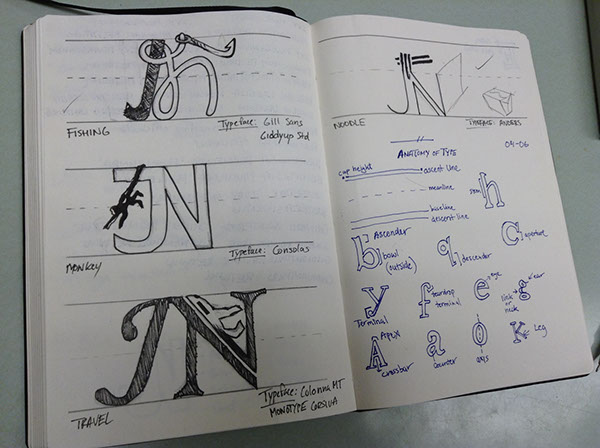 JN
FISHING
Typeface: Gill Sans
Giddyup Std
JN
MONKEY
Typeface: Consolas
JN
TRAVEL
Typeface: Colonna MT
MONOTYPE CORSIVA
JN
NOODLE
TYPEFACE: ANDERS
ANATOMY OF TYPE
09-06
cap height
ascent line
meanline
baseline
descent line
stem
h
Ascender
b
bowl
(outside)
q
descender
C
aperture
y
Terminal
f
teardrop
terminal
e
eye
g
ear
link
or
neck
A
Apex
crossbar
a
counter
o
axis
K
Leg